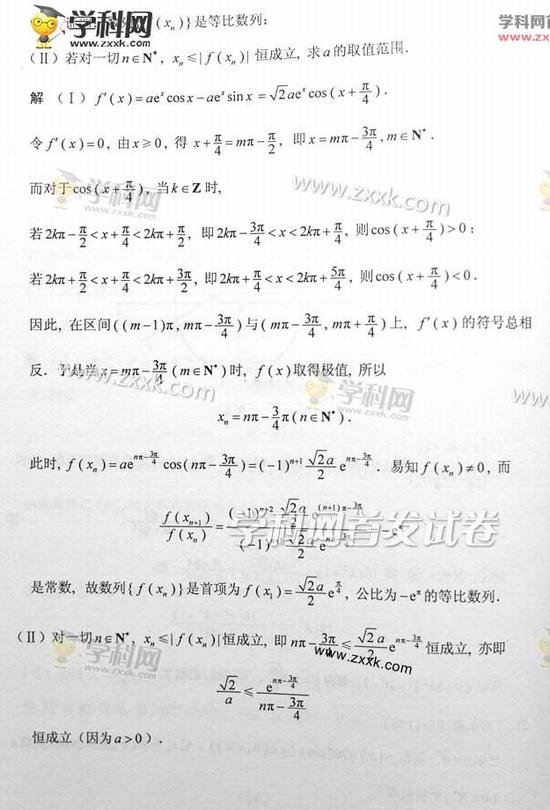 学科网
www.zxxk.com
学科网
www.zxxk
(xₙ)}是等比数列;
(Ⅱ) 若对一切 n∈N*, xₙ≤|f(xₙ)| 恒成立, 求 a 的取值范围.
解 (Ⅰ) f′(x)=aeˣcosx−aeˣsinx=√2aeˣcos(x+π/4).
令 f′(x)=0, 由 x≥0, 得 x+π/4=mπ−π/2, 即 x=mπ−3π/4, m∈N*.
学科网
www.zxxk.com
而对于cos(x+π/4), 当 k∈Z 时,
若 2kπ−π/2<x+π/4<2kπ+π/2, 即 2kπ−3π/4<x<2kπ+π/4, 则cos(x+π/4)>0;
若 2kπ+π/2<x+π/4<2kπ+3π/2, 即 2kπ+π/4<x<2kπ+5π/4, 则cos(x+π/4)<0.
因此, 在区间((m−1)π, mπ−3π/4)与(mπ−3π/4, mπ+π/4)上, f′(x)的符号总相
反. 于是当 x=mπ−3π/4(m∈N*)时, f(x)取得极值, 所以
www.zxxk.com
学科网
www.zxxk
xₙ=nπ−3/4π(n∈N*).
此时, f(xₙ)=ae^(nπ−3π/4)cos(nπ−3π/4)=(−1)ⁿ⁺¹ √2a/2 e^(nπ−3π/4). 易知 f(xₙ)≠0, 而
f(xₙ₊₁)/f(xₙ)=
学科网首发试卷
是常数, 故数列{f(xₙ)}是首项为 f(x₁)=√2a/2 e^(π/4), 公比为−e^π的等比数列.
(Ⅱ) 对一切 n∈N*, xₙ≤|f(xₙ)|恒成立, 即 nπ−3π/4≤√2a/2 e^(nπ−3π/4) 恒成立, 亦即
学科网
www.zxxk.com
√2/a≤e^(nπ−3π/4)/(nπ−3π/4)
恒成立(因为 a>0).